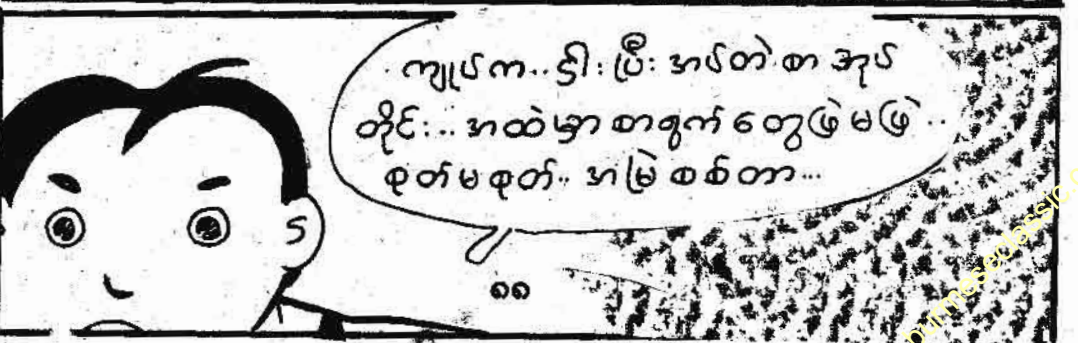 ကျုပ်က.. ငှါး ပြီး အပ်တဲ့ စာ အုပ်
တိုင်း.. အထဲမှာ စာရွက် တွေဖြဲ မဖြဲ..
စုတ်မစုတ်.. အမြဲ စစ်တာ...
၈၈
burmeseclassic.c